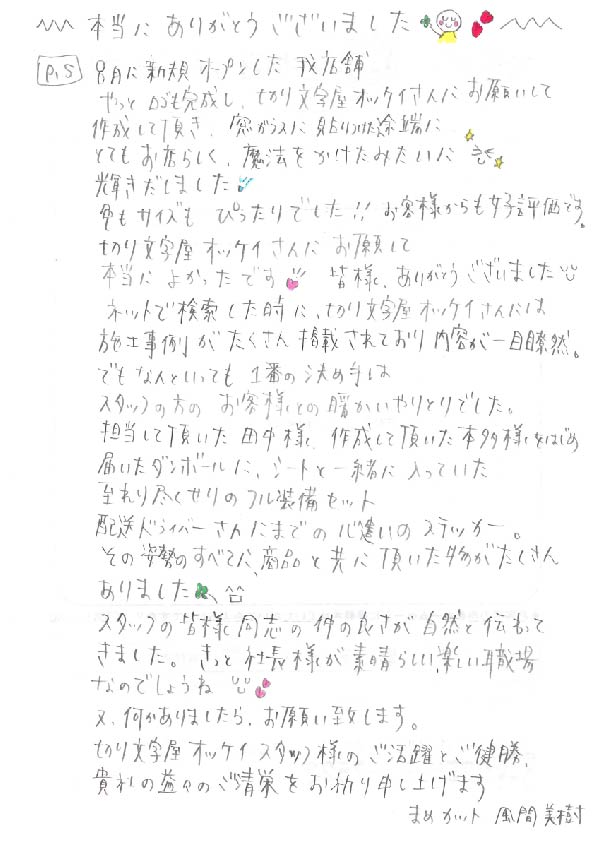 本当に ありがとうございました
P.S
8月に新規オープンした 我店舗
やっとロゴも完成し、切り文字屋オッケイさんに お願いして
作成して頂き、窓ガラスに 貼りつけた途端に
とても お店らしく、魔法をかけたみたいに
輝きだしました
色もサイズも ぴったりでした!! お客様からも好評価です。
切り文字屋 オッケイさんに お願して
本当に よかったです 皆様、ありがとうございました
ネットで検索した時に、切り文字屋 オッケイさんには
施工事例がたくさん 掲載されており 内容が一目瞭然。
でもなんといっても 1番の決め手は
スタッフの方の お客様との暖かいやりとりでした。
担当して頂いた 田中様、作成して頂いた本多様をはじめ
届いたダンボールに、シートと一緒に入っていた
至れり尽くせりのフル装備セット
配送ドライバーさんにまでの心遣いのステッカー。
その姿勢のすべてに、商品と共に頂いた物がたくさん
ありました
スタッフの皆様同志の仲の良さが自然と伝わって
きました。きっと社長様が素晴らしい、楽しい職場
なのでしょうね
又、何かありましたら、お願い致します。
切り文字屋 オッケイ スタッフ様の ご活躍とご健勝、
貴社の益々のご清栄を お祈り申し上げます
まめカット 風間美樹